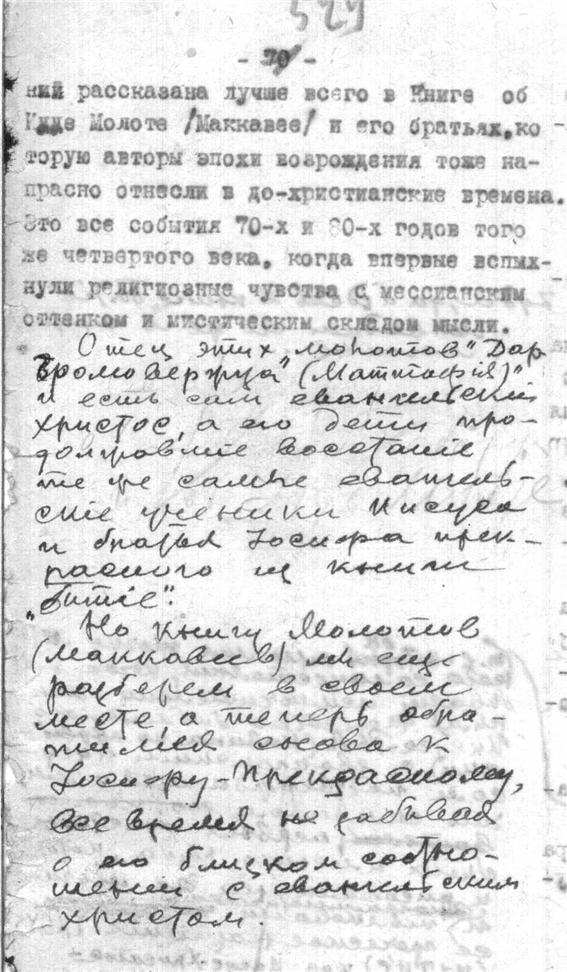 529
- 70 -
ний рассказана лучше всего в Книге об
Иуде Молоте /Маккавее/ и его братьях, ко
торую авторы эпохи возрождения тоже на-
прасно отнесли в до-христианские времена.
Это все события 70-х и 80-х годов того
же четвертого века, когда впервые вспых-
нули религиозные чувства с мессианским
оттенком и мистическим складом мысли.
Отец этих „молотов" „Дар
Громовержца" (Маттафія)"
и есть сам евангельскій
Христос, а его дети про-
должавшіе восстаніе
те же самые евангель-
скіе ученики Иисуса
и братья Іосифа прек-
расного из книги
„Бытіе".
Но книгу Молотов
(Маккавеев) мы еще
разберем в своем
месте, а теперь обра-
тимся снова к
Іосифу-Прекрасному,
все время не забывая
о его близком соотно-
шении с евангельским
христом.